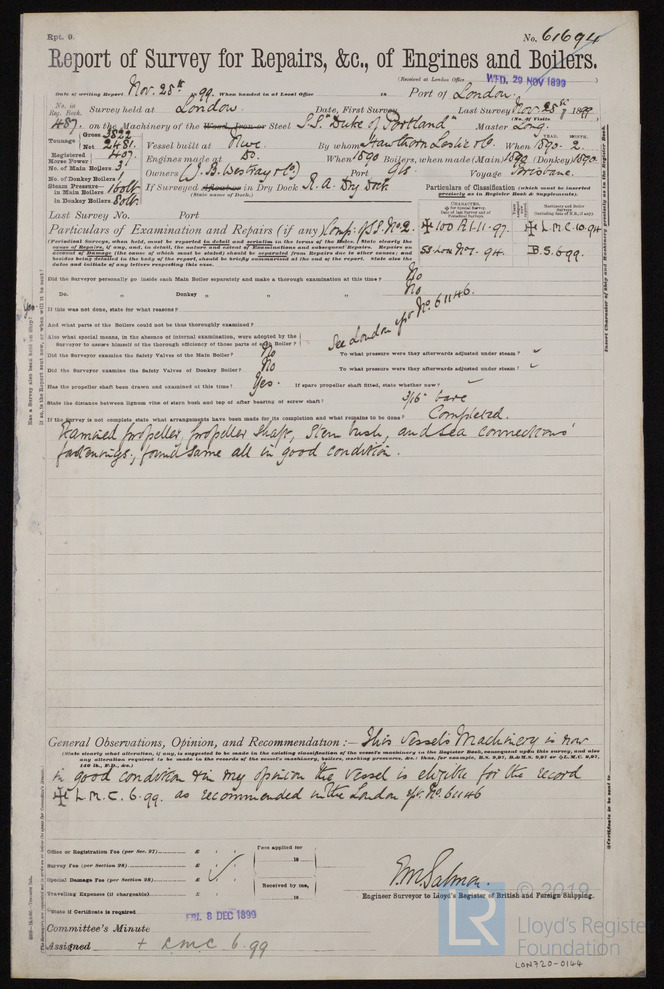 Rpt. 9.
No. 61694
Report of Survey for Repairs, &c., of Engines and Boilers.
(Received at London Office WED. 29 NOV 1899 )
Date of writing Report Nov. 28th 1899. When handed in at Local Office 18 Port of London.
No. in Reg. Book. Survey held at London Date, First Survey Last Survey Nov 25th 1899
(No. of Visits )
487. on the Machinery of the Wood, Iron or Steel S.S. "Duke of Portland" Master Long.
Tonnage Gross 3822 Net 2481. Vessel built at Nwc. By whom Hawthorn Leslie & Co. When 1890. 2.
YEAR. MONTH.
Registered Horse Power 407. Engines made at Do. When 1890 Boilers, when made (Main) 1890 (Donkey) 1890.
No. of Main Boilers 3. Owners W. J. B. Westray & Co. Port Gls. Voyage Brisbane.
No. of Donkey Boilers
Steam Pressure in Main Boilers 160 lb. If Surveyed Afloat or in Dry Dock R. A. Dry Dock
(State name of Dock.)
in Donkey Boilers 80 lb.
Particulars of Classification (which must be inserted precisely as in Register Book & Supplements).
Last Survey No. Port
Particulars of Examination and Repairs (if any) Comp. of S.S. No. 2.
✠ 100 A1. 11. 97. ✠ L.M.C. 10. 94
SS Lon No 1. 94. B.S. 6.99.
(Periodical Surveys, when held, must be reported in detail and seriatim in the terms of the Rules. State clearly the
cause of Repairs, if any, and, in detail, the nature and extent of Examinations and subsequent Repairs. Repairs on
account of Damage (the cause of which must be stated) should be separated from Repairs due to other causes; and
besides being detailed in the body of the report, should be briefly summarised at the end of the report. State also the
dates and initials of any letters respecting this case.
Did the Surveyor personally go inside each Main Boiler separately and make a thorough examination at this time? No
Do. " Donkey " " " No
If this was not done, state for what reasons? See London rpt. No. 61146.
And what parts of the Boilers could not be thus thoroughly examined?
Also what special means, in the absence of internal examination, were adopted by the
Surveyor to assure himself of the thorough efficiency of those parts of the Boiler?
Did the Surveyor examine the Safety Valves of the Main Boiler? No To what pressure were they afterwards adjusted under steam? "
Did the Surveyor examine the Safety Valves of Donkey Boiler? No To what pressure were they afterwards adjusted under steam? "
Has the propeller shaft been drawn and examined at this time? Yes. If spare propeller shaft fitted, state whether new?
State the distance between lignum vitæ of stern bush and top of after bearing of screw shaft? 3/16" bare
If the Survey is not complete state what arrangements have been made for its completion and what remains to be done? Completed.
Examined propeller, propeller shaft, stern bush, and sea connections'
fastenings, found same all in good condition.
General Observations, Opinion, and Recommendation :— This vessel's Machinery is now
(State clearly what alteration, if any, is suggested to be made in the existing classification of the vessel's machinery in the Register Book, consequent upon this survey, and also
any alteration required to be made in the records of the vessel's machinery, boilers, working pressures, &c.: thus, for example, B.S. 9,97, B.&M.S. 9,97, or ✠L.M.C. 9,97,
140 lb., F.D., &c.)
in good condition & in my opinion the vessel is eligible for the record
✠ L.M.C. 6.99. as recommended in the London rpt. No. 61146
Office or Registration Fee (per Sec. 27) £ : : Fees applied for
Survey Fee (per Section 28) £ : : 18
Special Damage Fee (per Section 28) £ : : Received by me,
Travelling Expenses (if chargeable) £ : : 18
E.M. Salmon.
Engineer Surveyor to Lloyd's Register of British and Foreign Shipping.
State if Certificate is required
Committee's Minute FRI. 8 DEC 1899
Assigned + L.M.C. 6.99
© 2019
LR
Lloyd's Register
Foundation
LON720-0144